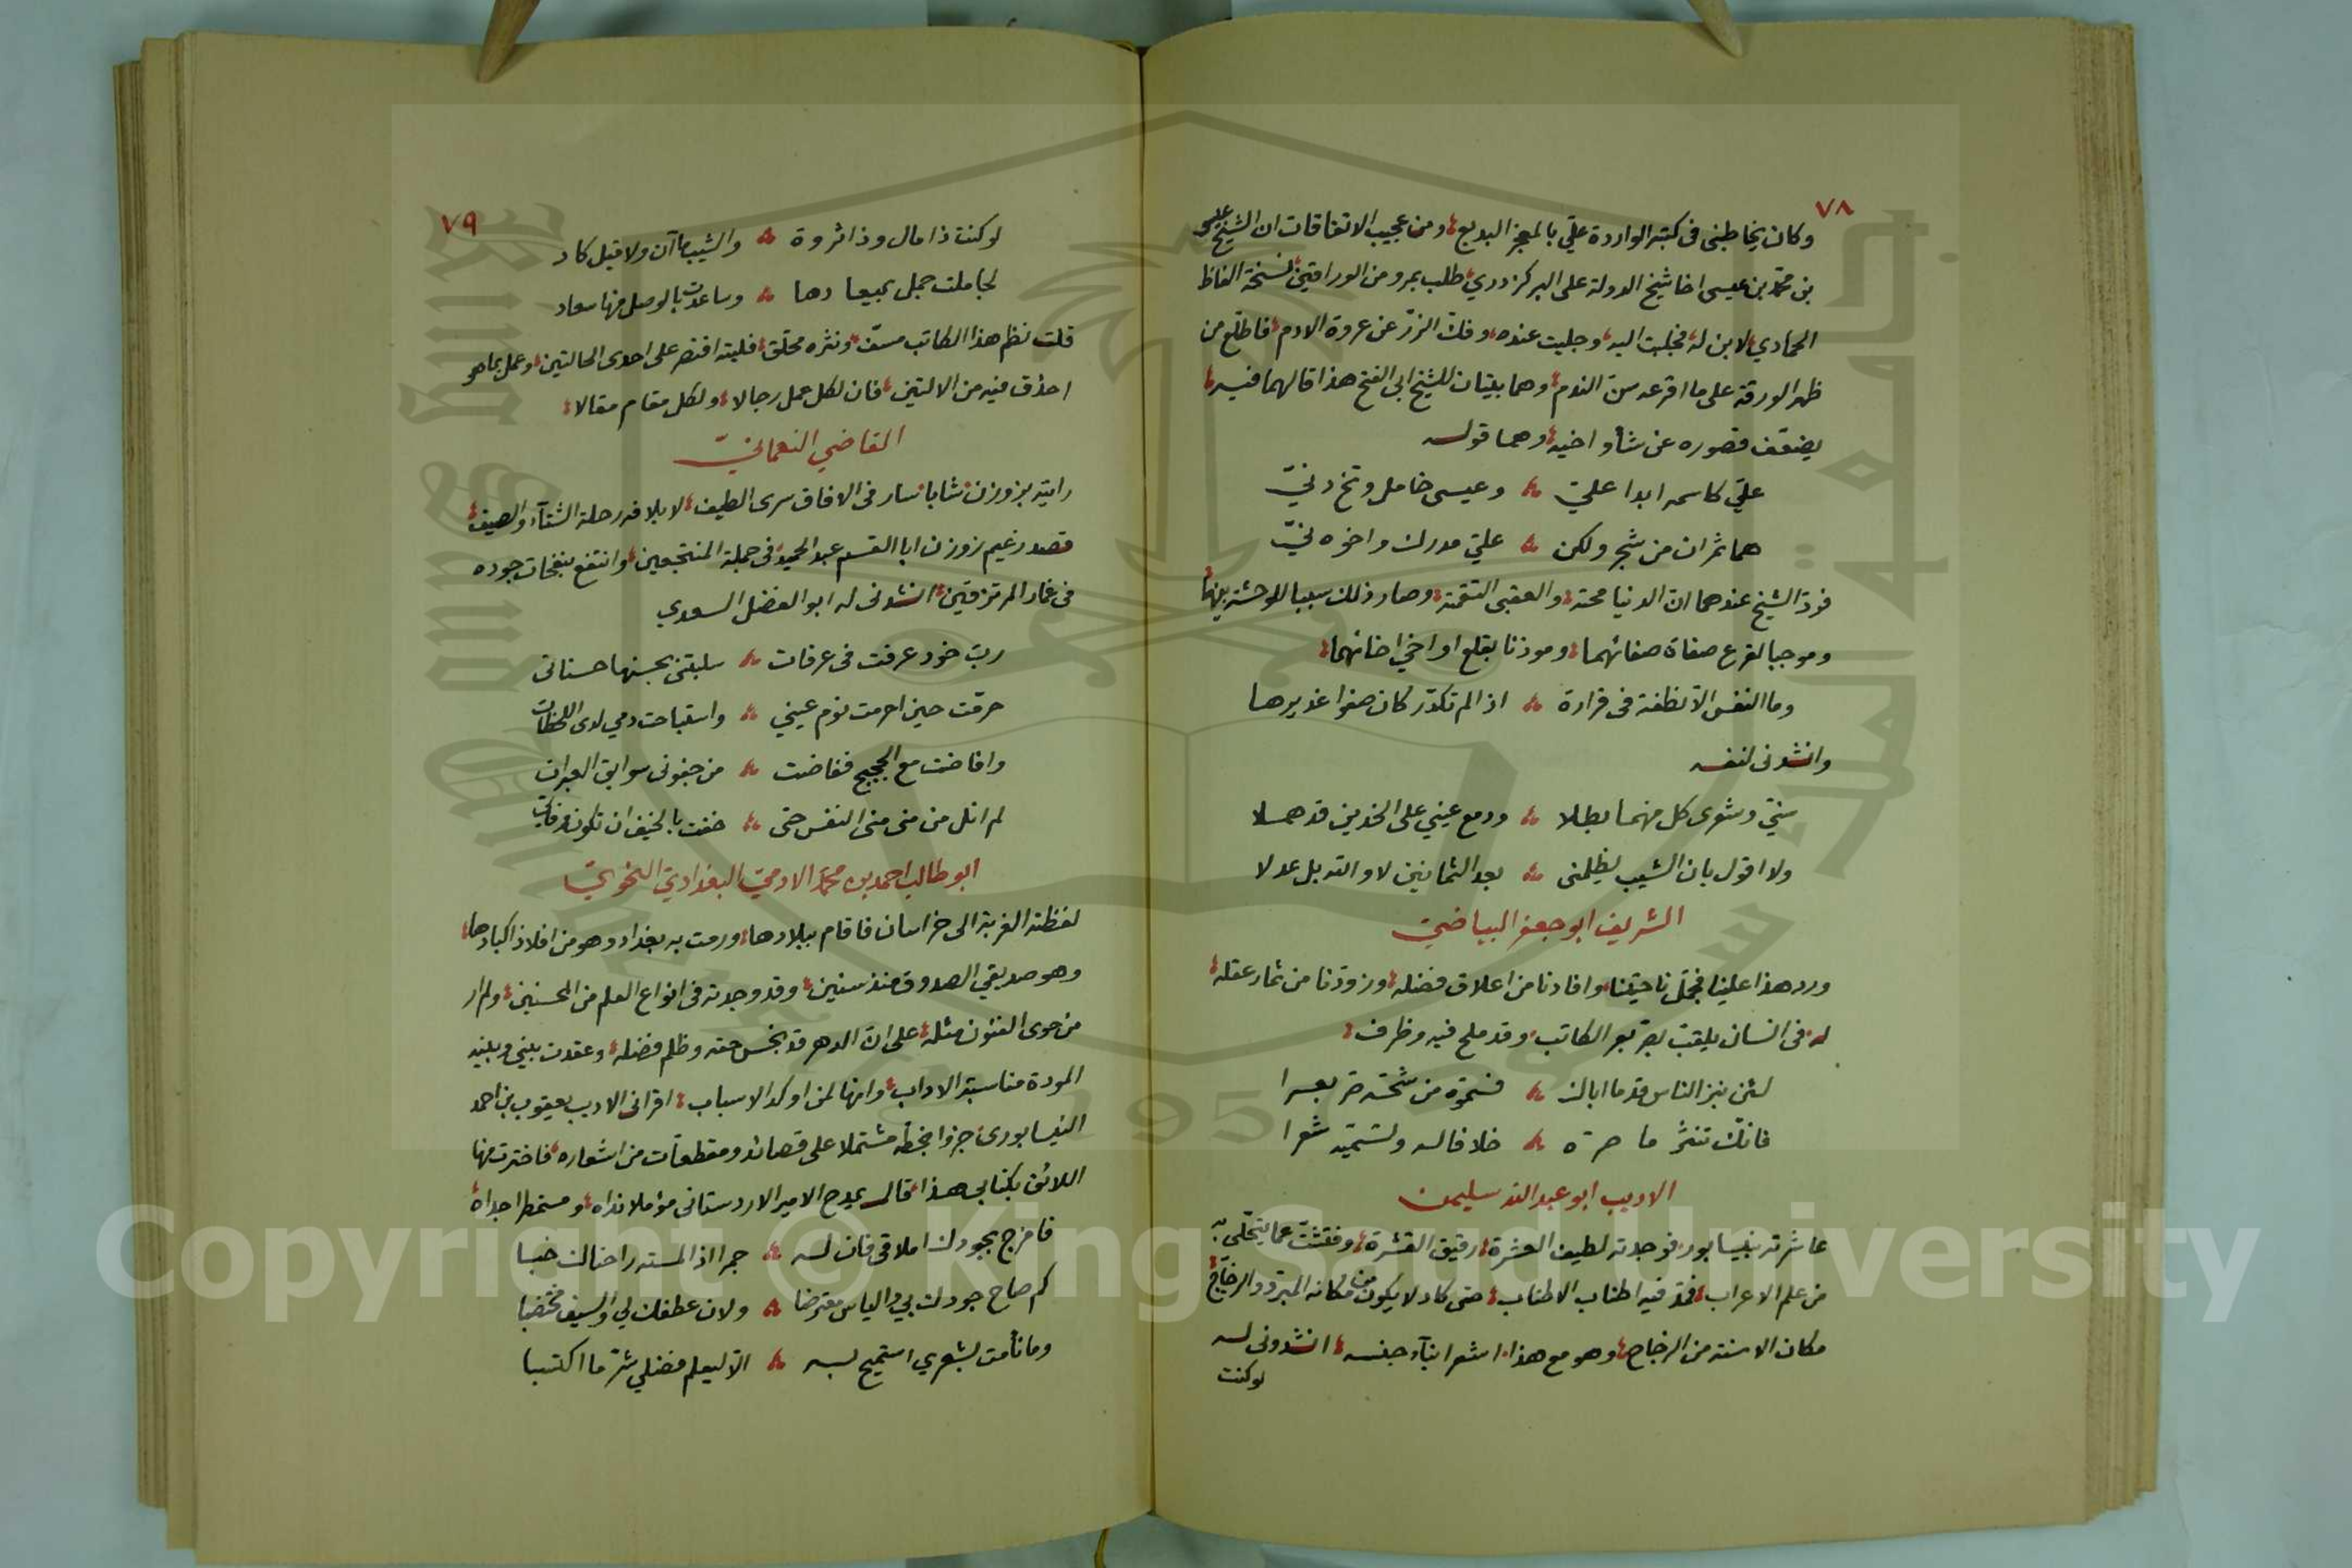 ٧٨
وكان يخاطبنى فى كتبه الواردة علىّ بالمعجز البديع ومن عجيب الاتفاقات ان الشيخ عيسى
بن محمد بن عيسى اخا شيخ الدولة على البركزدري طلب بمرو من الوراقين نسخة الفاظ
الحمادي لابن له فجلبت اليه وجليت عنده وفك الزرّ عن عروة الادم فاطلع من
ظهر الورقة على ما اقرعه سن الندم وهما بيتان للشيخ ابى الفتح هذا قالهما فيه
قصوره عن شأو اخيه وهما قوله
علىّ كاسمه ابدا علىّ وعيسى خامل وتخ دنىّ
هما ثمران من شجر ولكن علىّ مدرك واخوه نىّ
فودّ الشيخ عندهما ان الدنيا محته والعقبى التقمته وصار ذلك سببا للوحشة بينهما
وموجبا لقرع صفاة صفائهما وموذنا بقلع اواخي اخائهما
وما النفس الا نطفة فى قرارة اذا لم تكدّر كان صفوا غديرها
وانشدنى لنفسه
سنىّ وشعرى كل منهما بطلا ودمع عيني على الخدين قد هملا
ولا اقول بان الشيب يظلمنى بعد الثمانين لا والله بل عدلا
الشريف ابو جعفر البياضىّ
ورد هذا علينا فجمّل ناحيتنا وافادنا من اعلاق فضله وزوّدنا من ثمار عقله
له فى انسان يلقب بصربعر الكاتب وقد ملح فيه وظرف
لئن نبز الناس قدما اباك فسمّوه من شحّه صربعرا
فانك تنثر ما صرّه خلافا له وتسميه شعرا
الاديب ابو عبد الله سليمن
عاشرته بنيسابور فوجدته لطيف العشرة رقيق القشرة وفتشت عما يتحلى به
من علم الاعراب فمدّ فيه اطناب الاطناب حتى كاد لا يكون من مكانه المبرد والزجاج
مكان الاسنة من الزجاج وهو مع هذا اشعر ابناء جنسه انشدونى له
لو كنت
٧٩
لو كنت ذا مال وذا ثروة والشيب ما آن ولا قيل كاد
لجاملت جمل بميعادها وساعدت بالوصل منها سعاد
قلت نظم هذا الكاتب مسفّ ونثره محلق فليته اقتصر على احدى الحالتين وعمل بما هو
احذق فيه من الالتين فان لكل عمل رجالا ولكل مقام مقالا
القاضي النعمانىّ
رايته بزوزن شابا سار فى الافاق سرى الطيف لايلافه رحلة الشتآء والصيف
قصد زعيم زوزن ابا القسم عبد الحميد فى جملة المنتجعين وانتفع بنفحات جوده
فى غمار المرتزقين انشدنى له ابو الفضل السعدي
ربّ خود عرفت فى عرفات سلبتنى بحسنها حسناتى
حرّمت حين احرمت نوم عيني واستباحت دمي لدى اللحظات
وافاضت مع الحجيج ففاضت من جفونى سوابق العبرات
لم انل من منى منى النفس حتى خفت بالخيف ان تكون وفاتى
ابو طالب احمد بن محمد الادمىّ البغدادىّ النحوىّ
لفظته الغربة الى خراسان فاقام ببلادها ورمت به بغداد وهو من افلاذ اكبادها
وهو صديقي الصدوق منذ سنين وقد وجدته فى انواع العلم من المحسنين ولم ار
من حوى الفنون مثله على ان الدهر قد بخس حقه وظلم فضله وعقدت بيني وبينه
المودة مناسبة الاداب وانها لمن اوكد الاسباب اقرانى الاديب يعقوب بن احمد
النيسابورى جزوا بخطّه مشتملا على قصائد ومقطعات من اشعاره فاخترت منها
اللائق بكتابي هذا قال يمدح الامير الاردستانى مؤملا نداه ومستمطرا جداه
فامزج بجودك املاقى فان له جمرا اذا لمسته راحتاك خبا
كم صاح جودك بي والياس معترضا ولان عطفك لي والسيف مختضبا
وما نأمت بشعري استميح به الا ليعلم فضلي شرّ ما اكتسبا
Copyright © King Saud University
1957